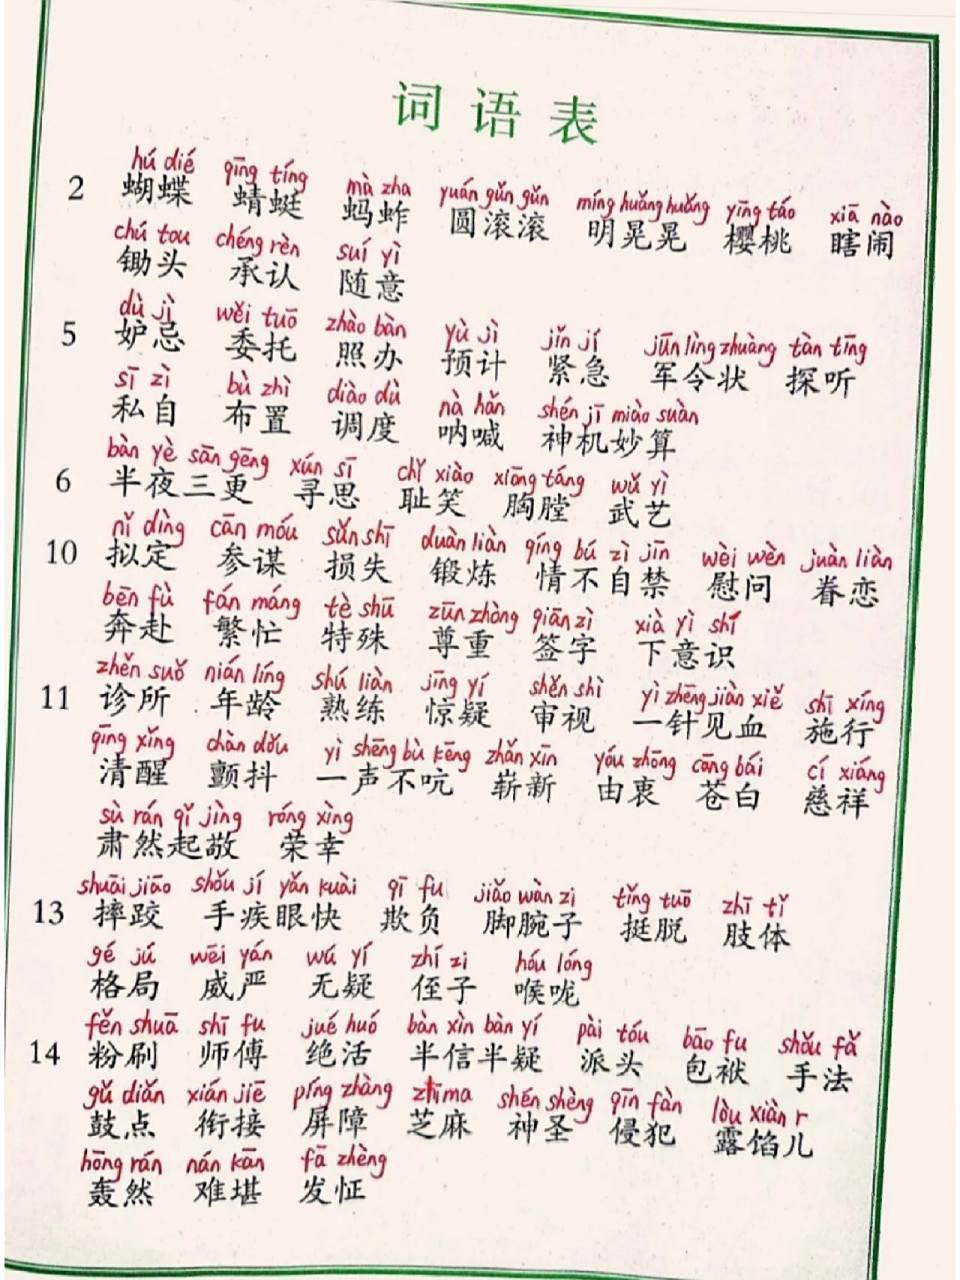 词语表
hú dié qīng tíng mà zha yuán gǔn gǔn míng huǎng huǎng yīng táo xiā nào
2 蝴蝶 蜻蜓 蚂蚱 圆滚滚 明晃晃 樱桃 瞎闹
chú tou chéng rèn suí yì
锄头 承认 随意
dù jì wěi tuō zhào bàn yù jì jǐn jí jūn lìng zhuàng tàn tīng
5 妒忌 委托 照办 预计 紧急 军令状 探听
sī zì bù zhì diào dù nà hǎn shén jī miào suàn
私自 布置 调度 呐喊 神机妙算
bàn yè sān gēng xún sī chǐ xiào xiōng táng wǔ yì
6 半夜三更 寻思 耻笑 胸膛 武艺
nǐ dìng cān móu sǔn shī duàn liàn qíng bú zì jīn wèi wèn juàn liàn
10 拟定 参谋 损失 锻炼 情不自禁 慰问 眷恋
bēn fù fán máng tè shū zūn zhòng qiān zì xià yì shí
奔赴 繁忙 特殊 尊重 签字 下意识
zhěn suǒ nián líng shú liàn jīng yí shěn shì yì zhēn jiàn xiě shī xíng
11 诊所 年龄 熟练 惊疑 审视 一针见血 施行
qīng xǐng chàn dǒu yì shēng bù kēng zhǎn xīn yóu zhōng cāng bái cí xiáng
清醒 颤抖 一声不吭 崭新 由衷 苍白 慈祥
sù rán qǐ jìng róng xìng
肃然起敬 荣幸
shuāi jiāo shǒu jí yǎn kuài qī fu jiǎo wàn zi tǐng tuō zhī tǐ
13 摔跤 手疾眼快 欺负 脚腕子 挺脱 肢体
gé jú wēi yán wú yí zhí zi hóu lóng
格局 威严 无疑 侄子 喉咙
fěn shuā shī fu jué huó bàn xìn bàn yí pài tóu bāo fu shǒu fǎ
14 粉刷 师傅 绝活 半信半疑 派头 包袱 手法
gǔ diǎn xián jiē píng zhàng zhī ma shén shèng qīn fàn lòu xiàn r
鼓点 衔接 屏障 芝麻 神圣 侵犯 露馅儿
hōng rán nán kān fā zhèng
轰然 难堪 发怔